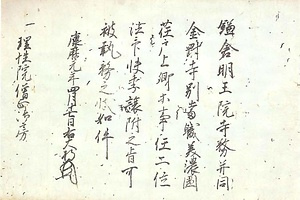 鎌倉明王院寺務并同
金剛寺別當職美濃國
荏子上郷等事任二位
法印快季讓附之旨可
被執務之状如件
康暦元年四月廿日右大将
理性院僧正御房